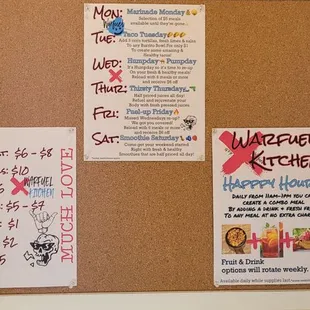 MON: Marinade Monday
Selection of 25 meals
available until they're gone...
TUE: Taco Tuesday
Add 3 corn tortillas, fresh limes & salsa
to any Burrito Bowl For only $1
To create some amazing &
Healthy tacos!
WED: Humpday Pumpday
It's Humpday so it's time to re-up
On your fresh & healthy meals!
Reload with 6 meals or more
and receive $6 off
THUR: Thirsty Thursday
Half priced juices all day!
Refuel and rejuvenate your
Body with fresh pressed juices.
FRI: Fuel-up Friday
Missed Wednesdays re-up?
We got you covered!
Reload with 6 meals or more
and receive $6 off
SAT: Smoothie Saturday
Come get your weekend started
Right with fresh & healthy
Smoothies that are half priced all day!
$6 - $8
$10
WARFUEL
KITCHEN
$5 - $7
$1
$2
$5
MUCH LOVE
WARFUEL
KITCHEN
HAPPY HOUR
DAILY FROM 11AM-1PM YOU CAN
CREATE A COMBO MEAL
BY ADDING A DRINK & FRESH FRUIT
TO ANY MEAL AT NO EXTRA CHARGE
Fruit & Drink
options will rotate weekly.
Available daily while supplies last